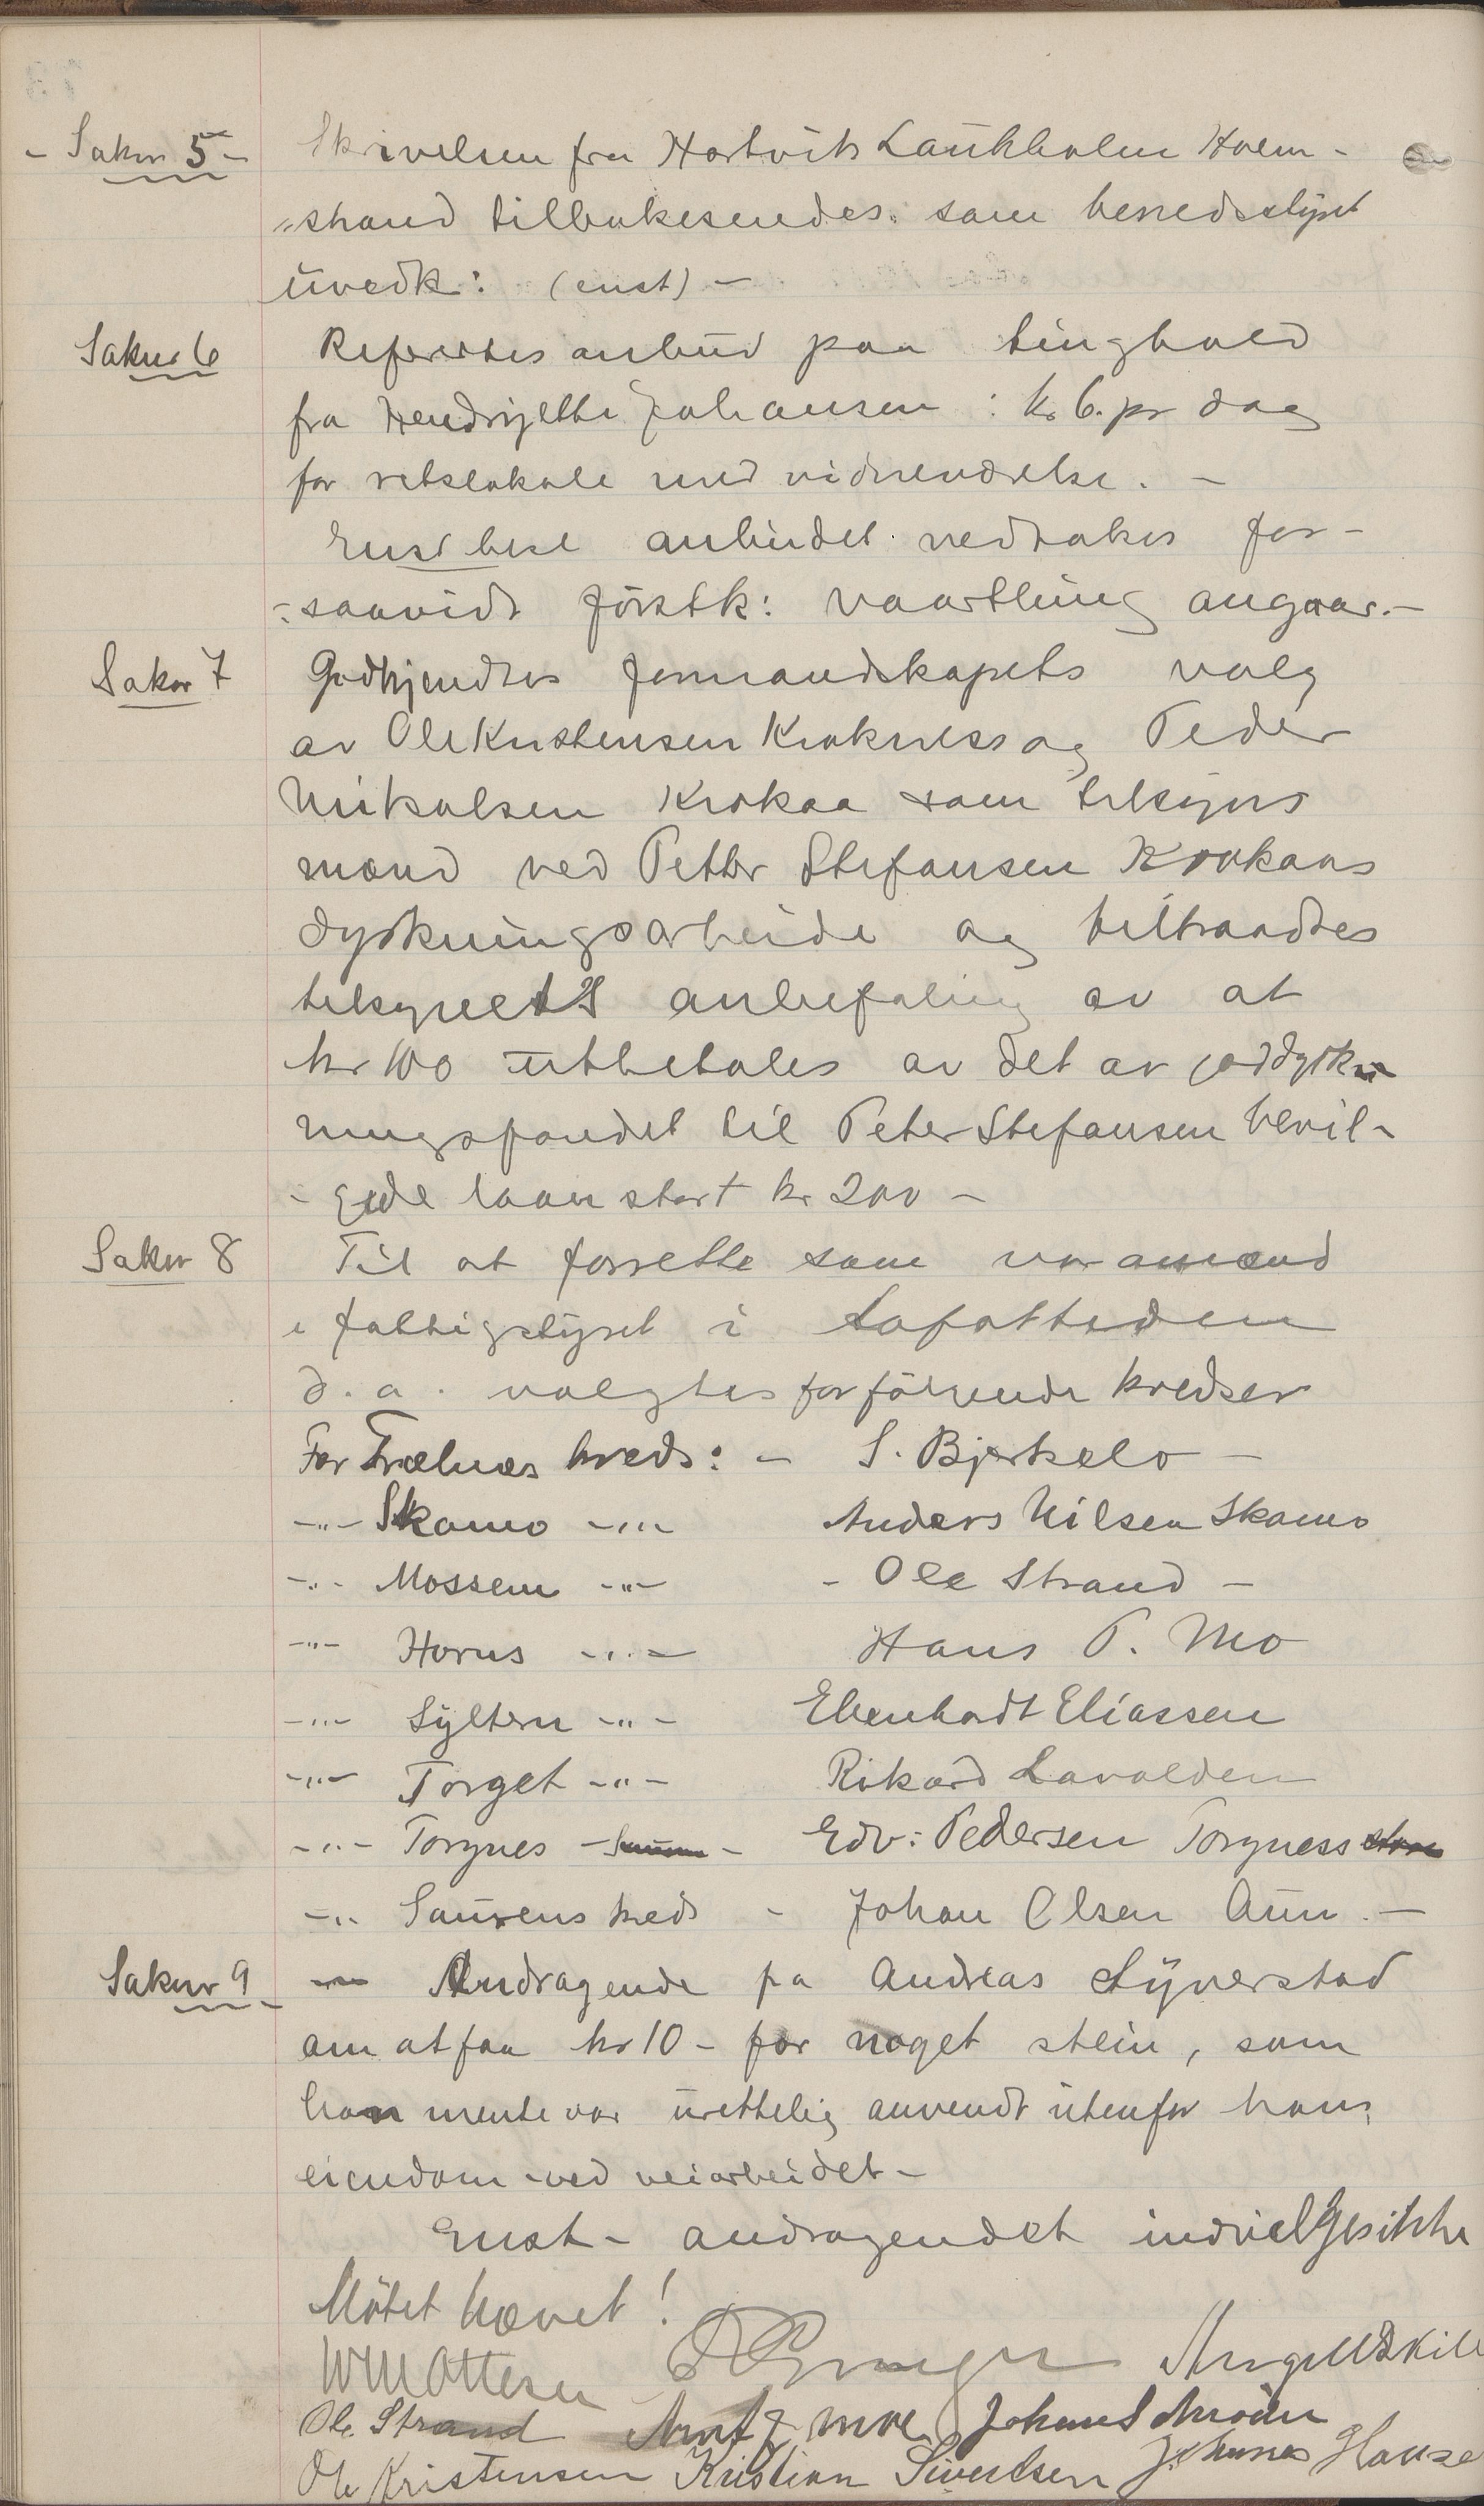 - Saknr 5 -
Skrivelsen fra Hartvik Laukholm Holm-
"strand tilbakesendes. som herredsstyret
uvedk: (enst) -
Saknr 6
Refereertes anbud paa tinghold
fra Hendrijette Johansen : kr 6. pr dag
for retslokale med vidneværelse. -
Enst besl anbudet vedtakes for-
-saavidt förstk: vaarthing angaar. -
Saknr 7
Godkjendtes formandskapets valg
av Ole Kristensen Krokness og Peder
Mikalsen Krokaa som tilsyns
mænd ved Petter Stefansen Krokaas
dyrkningsarbeide og tiltraadtes
tilsynets anbefaling av at
kr 100 utbetales av det av jorddyrk
ningsfondet til Peter Stefansen bevil-
- gede laan stort kr 200 -
Saknr 8
Til at forrette som varamænd
i fattigstyret i Lofottiden
d. a. valgtes for følgende kredser
For Trælnes kreds: - S. Bjørkelo -
-"- Skomo -"- Anders Nilsen Skomo
-"- Mossem -"- - Ole Strand -
-"- Horns -"- Hans P. Mo
-"- Syltern -"- Ebenhardt Eliassen
-"- Torget -"- Rikard Lavolden
-"- Torgnes - - Edv: Pedersen Torgness
-"- Saurens kreds - Johan Olsen Aun. -
Saknr 9
Andragende fra Andreas Sylverstad
om at faa kr 10 - for noget stein, som
han mente var urettelig anvendt utenfor hans
eiendom ved veiarbeidet -
Enst - andragendet indvilges ikke
Mötet hævet!
WM Ottesen
Ole Strand Arnt J Moe Johan Schrøder
Ole Kristensen Kristian Sivertsen Johannes Hause